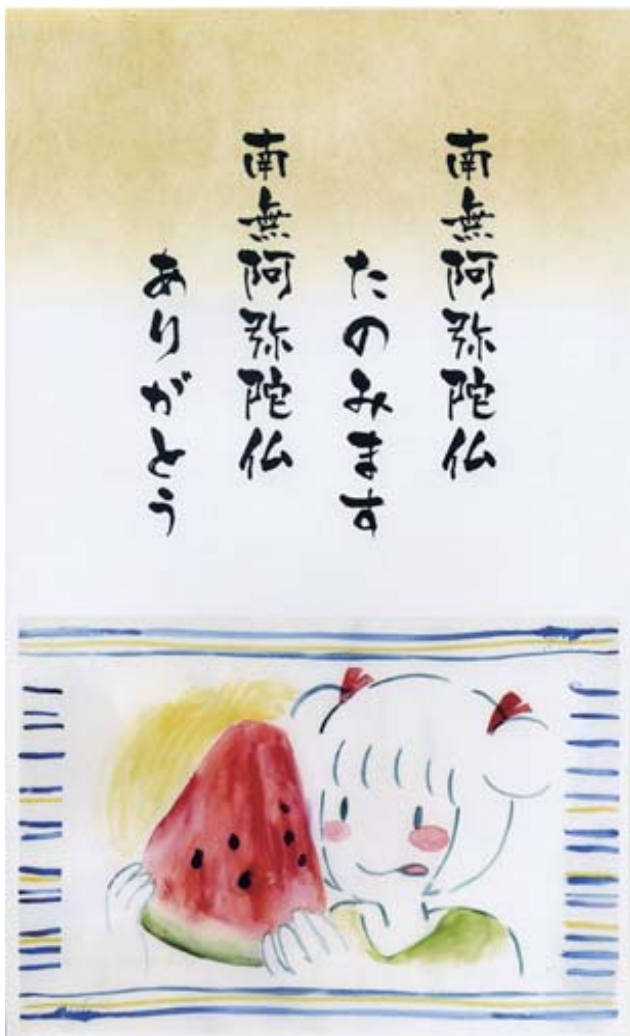 南無阿弥陀仏
たのみます
南無阿弥陀仏
ありがとう